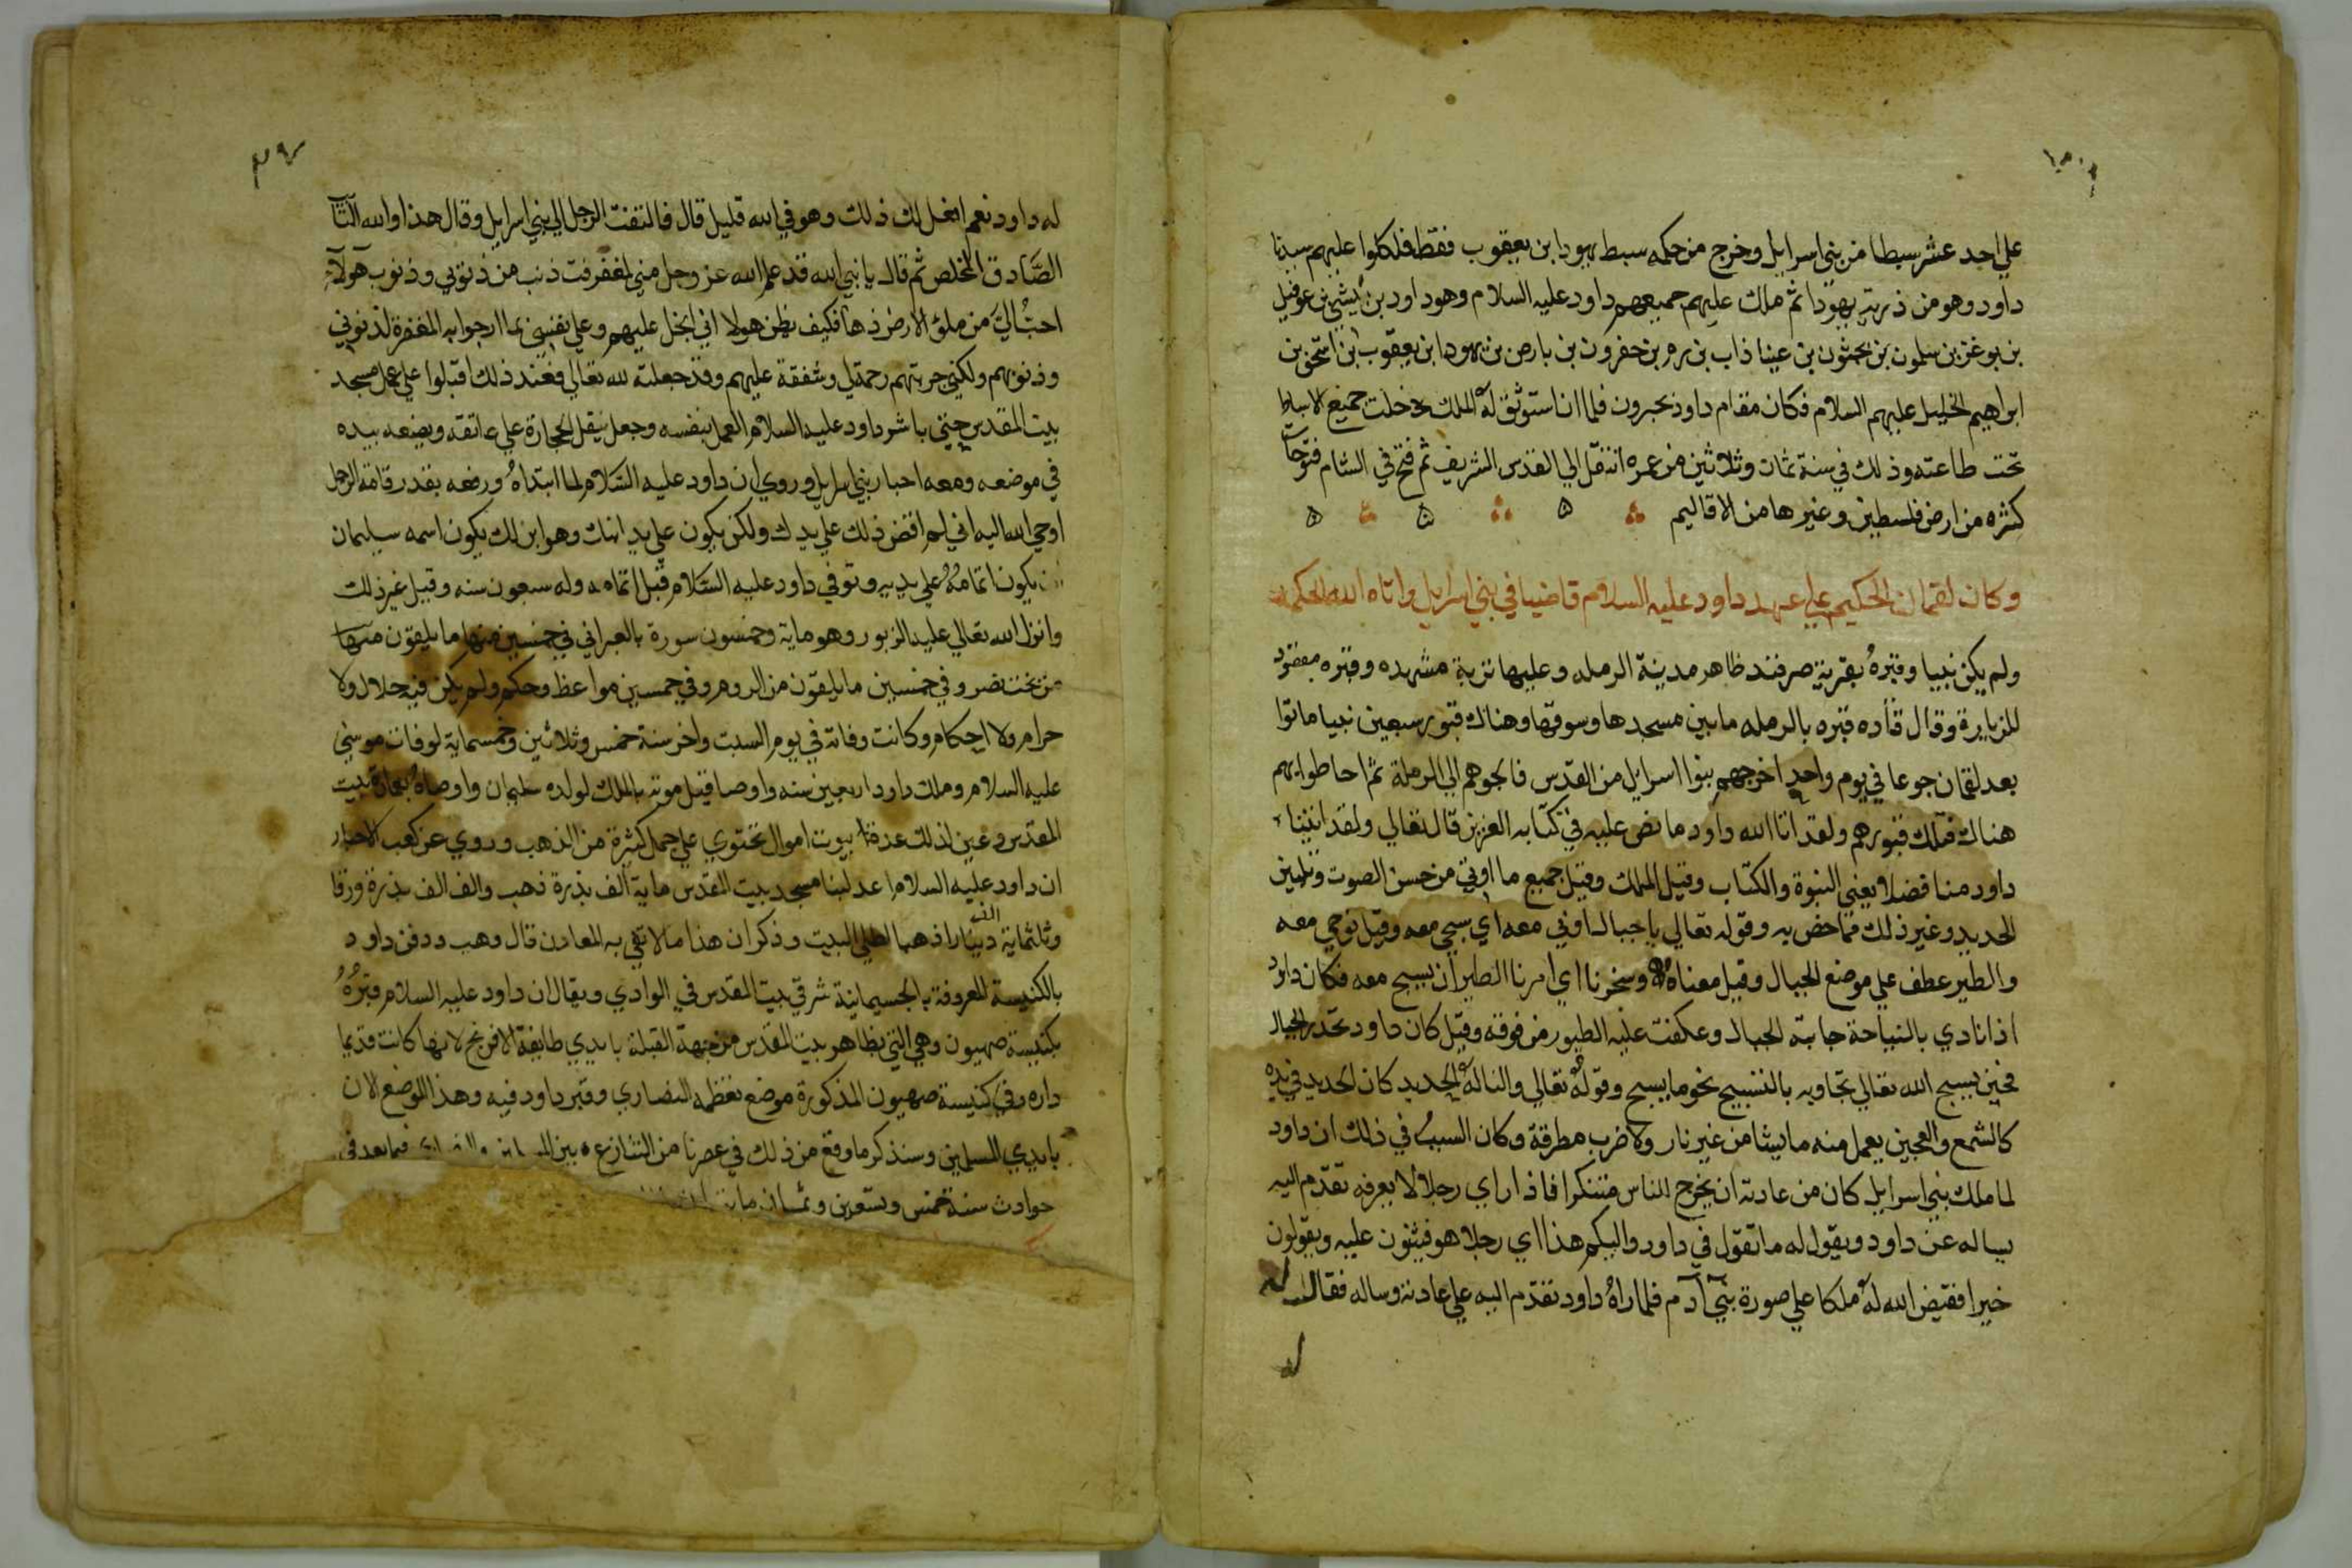 على احد عشر سبطا من بني اسرايل وخرج من حكمه سبط يهودا بن يعقوب فقط فلكوا عليهم سيدنا
داود وهو من ذرية يهودا ثم ملك عليهم جميعهم داود عليه السلام وهو داود بن يشي بن عوفيل
بن بوعز بن سلمون بن نحشون بن عينا ذاب بن رم بن حفرون بن بارص بن يهودا بن يعقوب بن اسحق بن
ابراهيم الخليل عليهم السلام فكان مقام داود بحبرون فلما ان استوثق له الملك دخلت جميع الاسباط
تحت طاعته وذلك في سنة ثمان وثلاثين من عمره انتقل الي القدس الشريف ثم فتح في الشام فتوحات
كثره من ارض فلسطين وغيرها من الاقاليم
وكان لقمان الحكيم علي عهد داود عليه السلام قاضيا في بني اسرايل واتاه الله الحكمه
ولم يكن نبيا وقبره بقرية صرفند ظاهر مدينة الرمله وعليها تربة مشهده وقبره مقصود
للزيارة وقال قتاده قبره بالرمله ما بين مسجدها وسوقها وهناك قبور سبعين نبيا ماتوا
بعد لقمان جوعا في يوم واحد اخرجهم بنوا اسرائيل من القدس فالجوهم الي الرملة ثم احاطوا بهم
هناك فتلك قبورهم ولقد اتا الله داود ما نص عليه في كتابه العزيز قال تعالي ولقد اتينا
داود منا فضلا يعني النبوة والكتاب وقيل الملك وقيل جميع ما اوتي من حسن الصوت وتليين
الحديد وغير ذلك مما خص به وقوله تعالي يا جبال اوبي معه اي سبحي معه وقيل نوحي معه
والطير عطف علي موضع الجبال وقيل معناه وسخرنا اي امرنا الطير ان يسبح معه فكان داود
اذا نادي بالنياحة جابته الجبال وعكفت عليه الطيور من فوقه وقيل كان داود تخدر الجبال
فحين يسبح الله تعالي تجاوبه بالتسبيح نحو ما يسبح وقوله تعالي والنا له الحديد كان الحديد في يده
كالشمع والعجين يعمل منه ما يشا من غير نار ولا ضرب مطرقة وكان السبب في ذلك ان داود
لما ملك بني اسرايل كان من عادته ان يخرج للناس متنكرا فاذا راي رجلا لا يعرفه تقدم اليه
يساله عن داود ويقول له ما تقول في داود واليكم هذا اي رجلا هو فيثنون عليه ويقولون
خيرا فقيض الله له ملكا علي صورة بني آدم فلما راه داود تقدم اليه علي عادته وساله فقال له
له
٣٧
له داود نعم افعل لك ذلك وهو في الله قليل قال فالتفت الرجل الي بني اسرايل وقال هذا والله التآ
الصادق المخلص ثم قال يا نبي الله قد علم الله عز وجل مني لمغفرت ذنب من ذنوبي وذنوب هولآء
احب الي من ملؤ الارض ذهبا فكيف يظن هولا اني ابخل عليهم وعلي نفسي بما ارجوا به المغفرة لذنوبي
وذنوبهم ولكني جربتهم رحمة لي وشفقة عليهم وقد جعلته لله تعالي فعند ذلك اقبلوا علي عمل مسجد
بيت المقدس حتي باشر داود عليه السلام العمل بنفسه وجعل ينقل الحجارة علي عاتقه ويضعه بيده
في موضعه ومعه احبار بني اسرايل وروي ان داود عليه السلام لما ابتداه ورفعه بقدر قامة الرجل
اوحي الله اليه اني لم اقض ذلك علي يدك ولكن يكون علي يد ابنك وهو ابن لك يكون اسمه سليمان
يكون اتمامه علي يديه وتوفي داود عليه السلام قبل اتمامه وله سبعون سنه وقيل غير ذلك
وانزل الله تعالي عليه الزبور وهو ماية وخمسون سورة بالعبراني في خمسين منها ما يلقون منها
من بخت نصر وفي خمسين ما يلقون من الروم وفي خمسين مواعظ وحكم ولم يكن فيه حلال ولا
حرام ولا احكام وكانت وفاته في يوم السبت واخر سنة خمس وثلاثين وخمسماية لوفات موسي
عليه السلام وملك داود اربعين سنه واوصا قبل موته بالملك لولده سليمان واوصاه بعمارة بيت
المقدس وعين لذلك عدة بيوت اموال تحتوي علي جمل كثيرة من الذهب وروي عن كعب الاحبار
ان داود عليه السلام اعد لبنا مسجد بيت المقدس ماية الف بذرة ذهب والف الف بذرة ورقا
وثلثماية الف دينارا ذهبا لطلي البيت وذكر ان هذا ما لا تفي به المعادن قال وهب ودفن داود
بالكنيسة المعروفة بالجسيمانية شرقي بيت المقدس في الوادي ويقال ان داود عليه السلام قبره
بكنيسة صهيون وهي التي بظاهر بيت المقدس من جهة القبلة بايدي طايفة الافرنج لانها كانت قديما
داره وفي كنيسة صهيون المذكورة موضع تعظمه النصاري وقبر داود فيه وهذا الموضع الان
بايدي المسلمين وسنذكر ما وقع من ذلك في عصرنا من التنازع بين فيما بعد في
حوادث سنة خمس وتسعين وثمان ماية